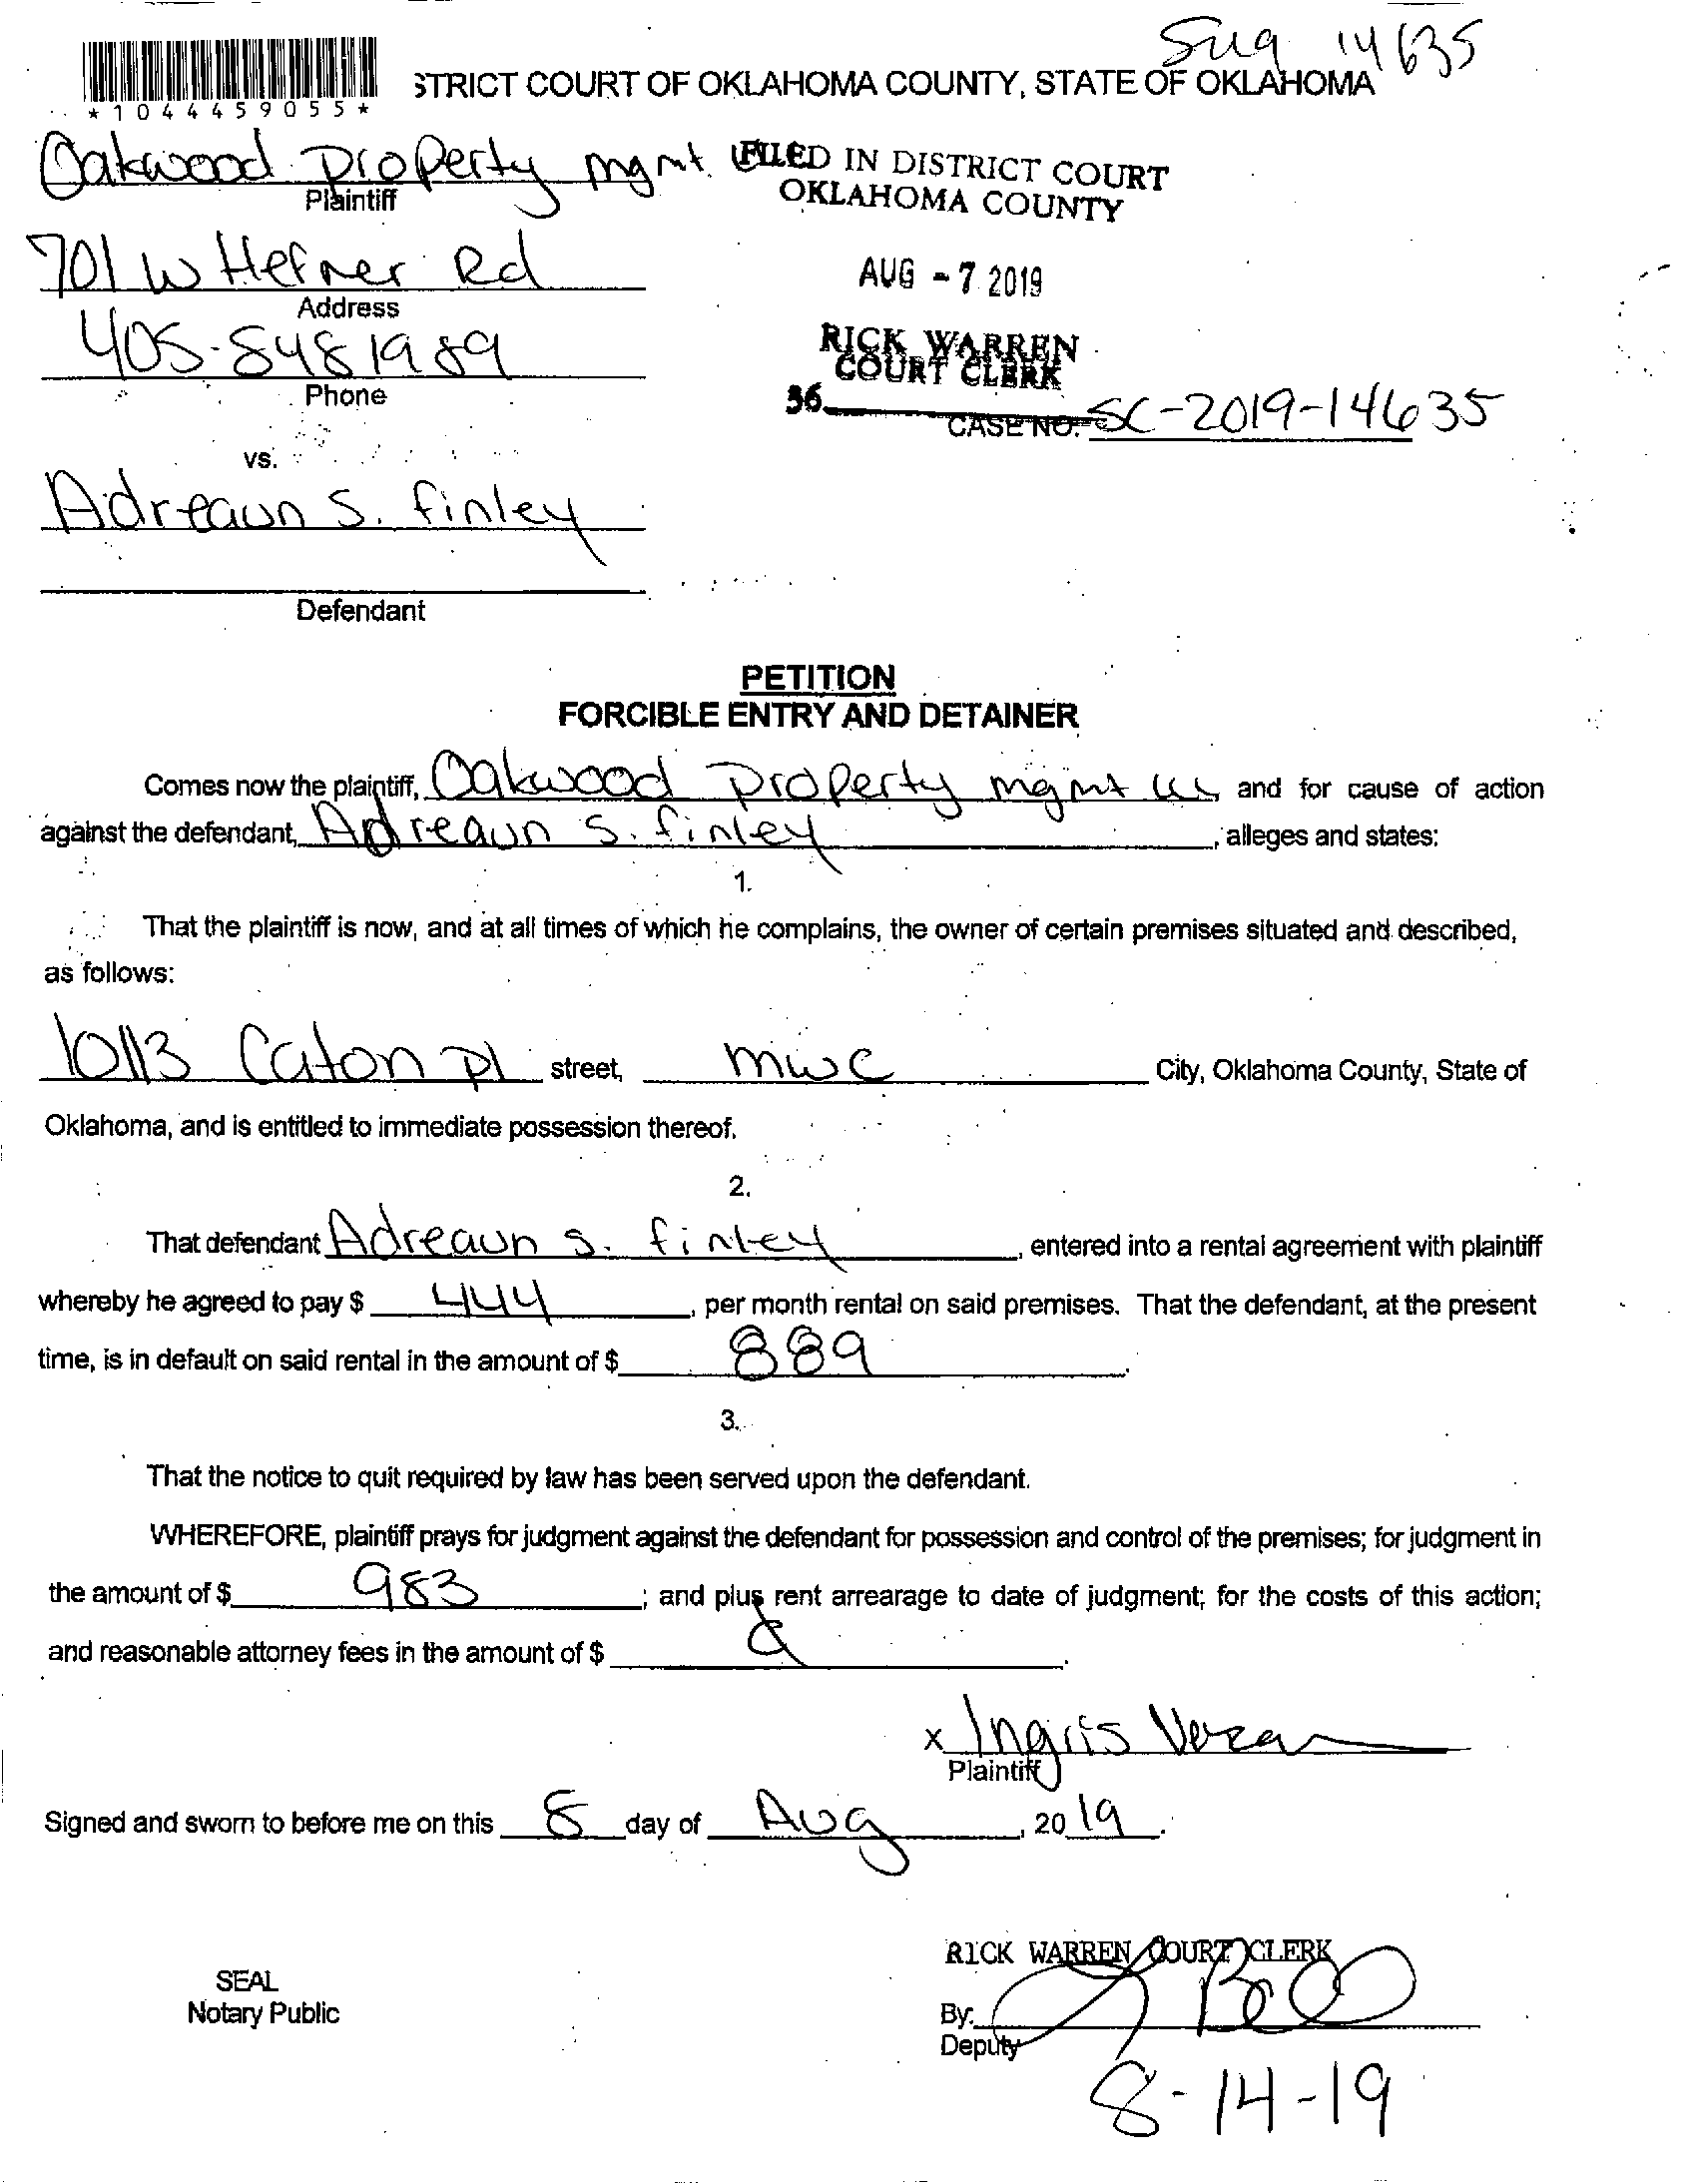 14635
STRICT COURT OF OKLAHOMA COUNTY, STATE OF OKLAHOMA
*1044459055*
Oakwood Property mgmt.
Plaintiff
FILED IN DISTRICT COURT
OKLAHOMA COUNTY
701 W Hefner Rd
Address
AUG - 7 2019
405-848 1989
Phone
RICK WARREN
COURT CLERK
36
CASE NO. SC-2019-14635
vs.
Adreaun S. finley
Defendant
PETITION
FORCIBLE ENTRY AND DETAINER
Comes now the plaintiff, Oakwood Property mgmt LLC and for cause of action
against the defendant, Adreaun S. finley, alleges and states:
1.
That the plaintiff is now, and at all times of which he complains, the owner of certain premises situated and described,
as follows:
10113 Caton pl street, mwc City, Oklahoma County, State of
Oklahoma, and is entitled to immediate possession thereof.
2.
That defendant Adreaun S. finley, entered into a rental agreement with plaintiff
whereby he agreed to pay $ 444, per month rental on said premises. That the defendant, at the present
time, is in default on said rental in the amount of $ 889.
3.
That the notice to quit required by law has been served upon the defendant.
WHEREFORE, plaintiff prays for judgment against the defendant for possession and control of the premises; for judgment in
the amount of $ 983; and plus rent arrearage to date of judgment; for the costs of this action;
and reasonable attorney fees in the amount of $
x Ingris
Plaintiff
Signed and sworn to before me on this 8 day of Aug, 2019.
RICK WARREN COURT CLERK
SEAL
Notary Public
By:
Deputy
8-14-19